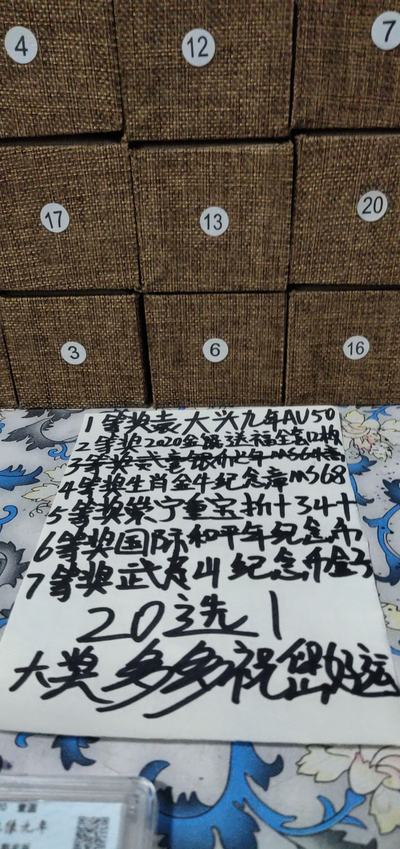 4
12
7
17
13
20
3
6
16
1等奖袁大头九年AU50
2等奖2020金鼠送福全套12枚
3等奖武童银币七年MS64
4等奖生肖金牛纪念章MS68
5等奖荣宁重宝折十34十
6等奖国际和平年纪念币
7等奖武夷山纪念币
20选1
大奖多多祝您好运
像元年